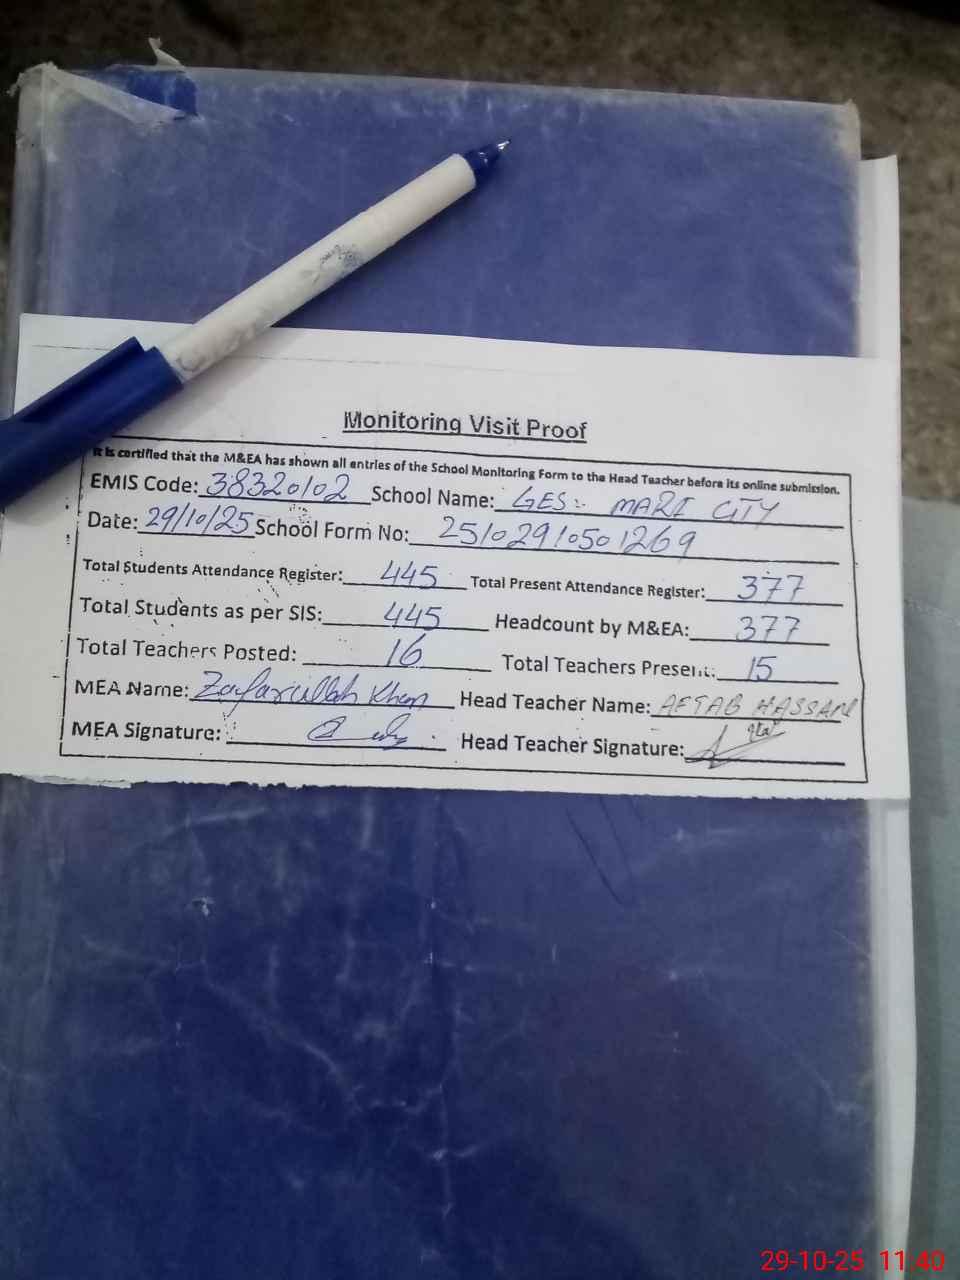 Monitoring Visit Proof
It is certified that the M&EA has shown all entries of the School Monitoring Form to the Head Teacher before its online submission.
EMIS Code: 38320102 School Name: GES:- MARI CITY
Date: 29/10/25 School Form No: 2510291050 1269
Total Students Attendance Register: 445 Total Present Attendance Register: 377
Total Students as per SIS: 445 Headcount by M&EA: 377
Total Teachers Posted: 16 Total Teachers Present: 15
MEA Name: Zafarullah Khan Head Teacher Name: AFTAB HASSAN
MEA Signature: Head Teacher Signature:
29-10-25 11:40